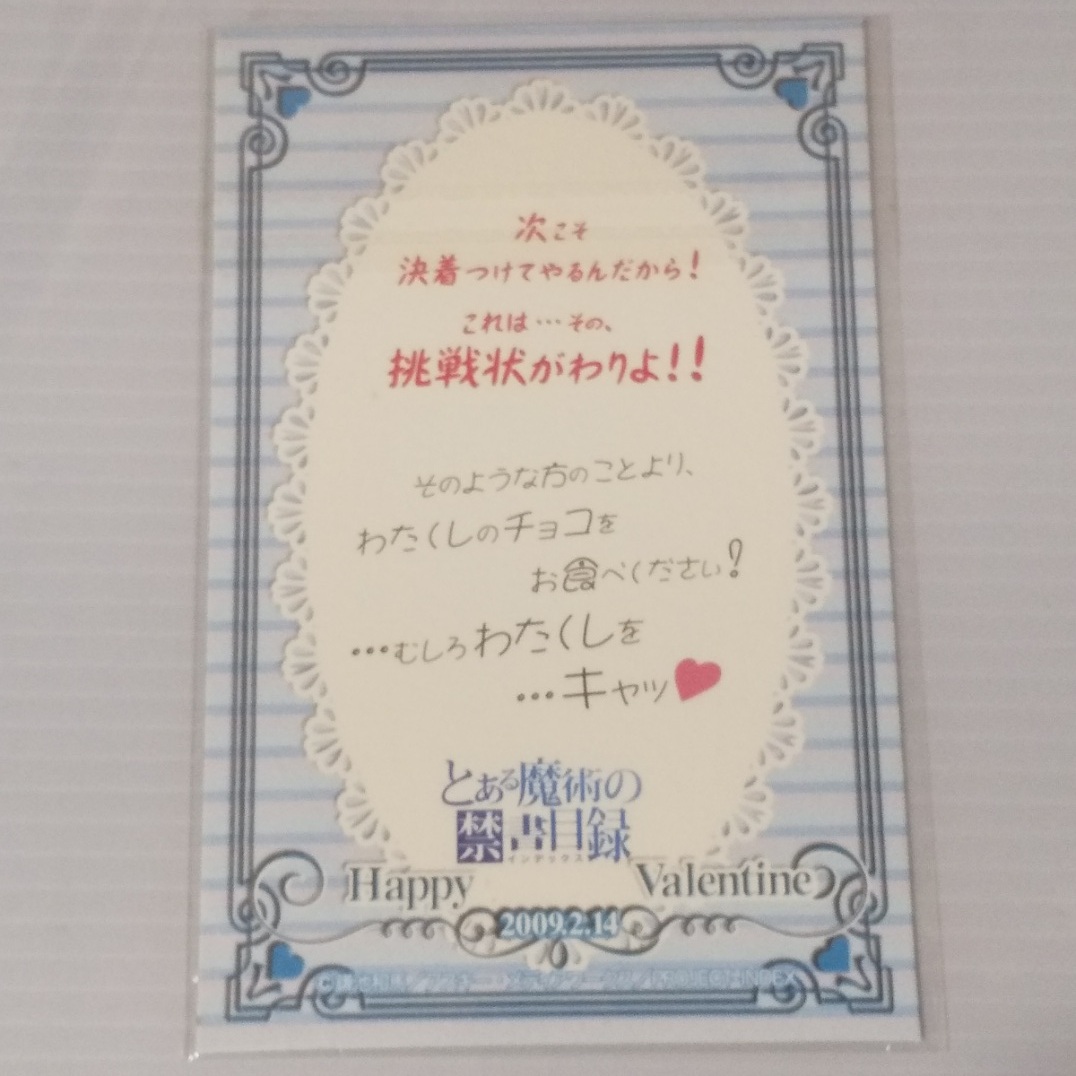 次こそ
決着つけてやるんだから!
これは…その、
挑戦状がわりよ!!
そのような方のことより、
わたくしのチョコを
お食べください?
…むしろわたくしを
…キャッ♥
とある魔術の
禁書目録
インデックス
Happy Valentine
2009.2.14
PROJECT-INDEX